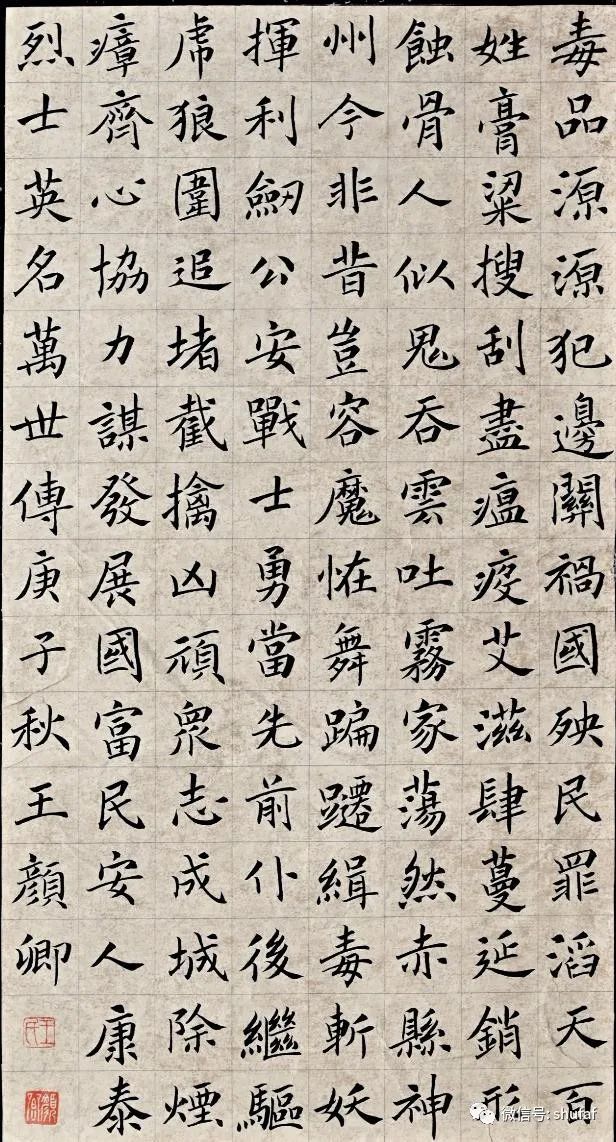 毒品源源犯邊關禍國殃民罪滔天百
姓膏粱搜刮盡瘟疫艾滋肆蔓延銷形
蝕骨人似鬼吞雲吐霧家蕩然赤縣神
州今非昔豈容魔恠舞蹁躚緝毒斬妖
揮利劒公安戰士勇當先前仆後繼驅
虎狼圍追堵截擒凶頑衆志成城除煙
瘴齊心協力謀發展國富民安人康泰
烈士英名萬世傳庚子秋王顏卿
微信号: shufaf